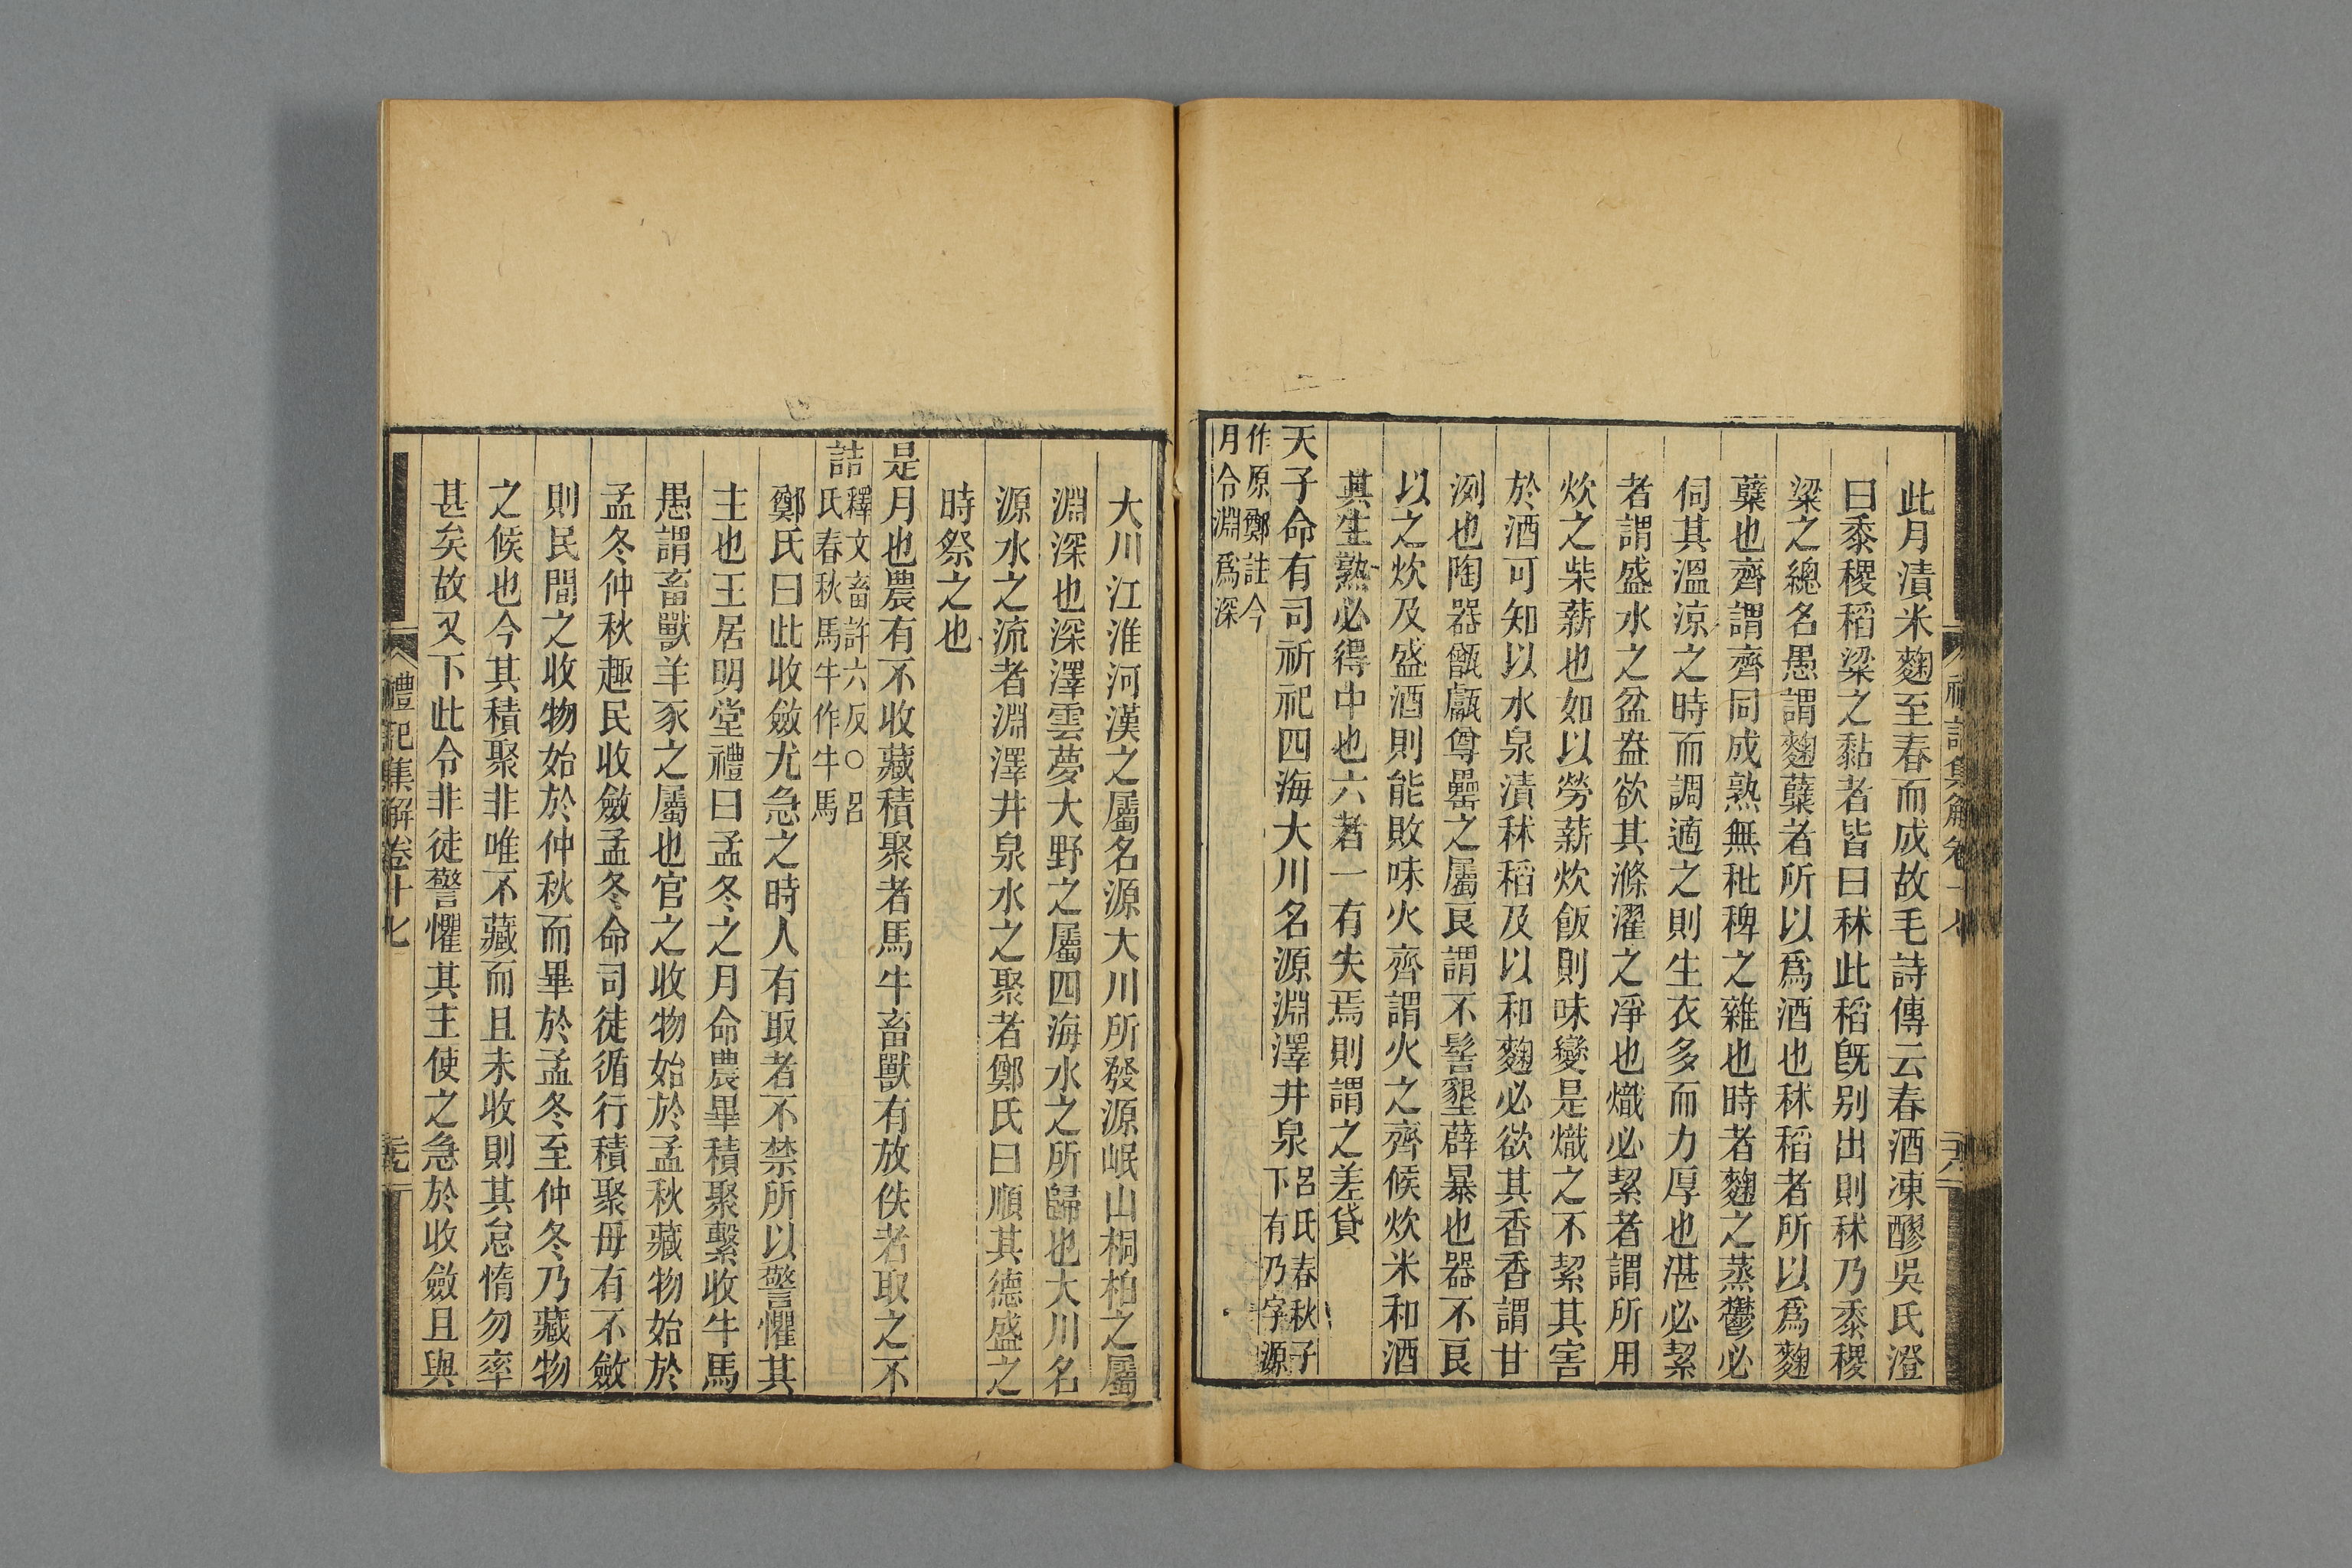 此月漬米麴至春而成故毛詩傳云春酒凍醪吳氏澄
曰黍稷稻粱之黏者皆曰秫此稻旣别出則秫乃黍稷
粱之總名愚謂麴糵者所以爲酒也秫稻者所以爲麴
糵也齊謂齊同成熟無秕稗之雜也時者麴之蒸鬱必
伺其溫涼之時而調適之則生衣多而力厚也湛必絜
者謂盛水之盆盎欲其滌濯之淨也熾必絜者謂所用
炊之柴薪也如以勞薪炊飯則味變是熾之不絜其害
於酒可知以水泉漬秫稻及以和麴必欲其香香謂甘
洌也陶器甑甗尊罍之屬良謂不髻墾薜暴也器不良
以之炊及盛酒則能敗味火齊謂火之齊候炊米和酒
其生熟必得中也六者一有失焉則謂之差貸
天子命有司祈祀四海大川名源淵澤井泉呂氏春秋子下有乃字源
作原鄭註今月令淵爲深
禮記集解卷十七
大川江淮河漢之屬名源大川所發源岷山桐柏之屬
淵深也深澤雲夢大野之屬四海水之所歸也大川名
源水之流者淵澤井泉水之聚者鄭氏曰順其德盛之
時祭之也
是月也農有不收藏積聚者馬牛畜獸有放佚者取之不
詰釋文畜許六反○呂氏春秋馬牛作牛馬
鄭氏曰此收斂尤急之時人有取者不禁所以警懼其
主也王居明堂禮曰孟冬之月命農畢積聚繫收牛馬
愚謂畜獸羊豕之屬也官之收物始於孟秋藏物始於
孟冬仲秋趣民收斂孟冬命司徒循行積聚毋有不斂
則民間之收物始於仲秋而畢於孟冬至仲冬乃藏物
之候也今其積聚非唯不藏而且未收則其怠惰勿率
甚矣故又下此令非徒警懼其主使之急於收斂且與
禮記集解卷十七